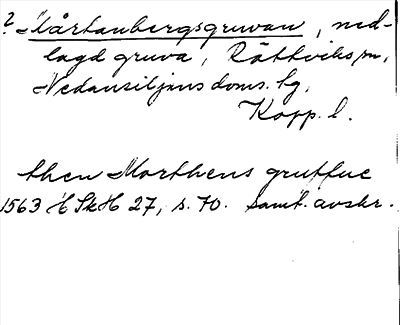 ? Mårtanbergsgruvan, ned-
lagd gruva, Rättviks sn,
Nedansiljans doms. tg,
Kopp. l.
then Morthens gruffue
1563 HSkH 27, s. 70. samt. avskr.